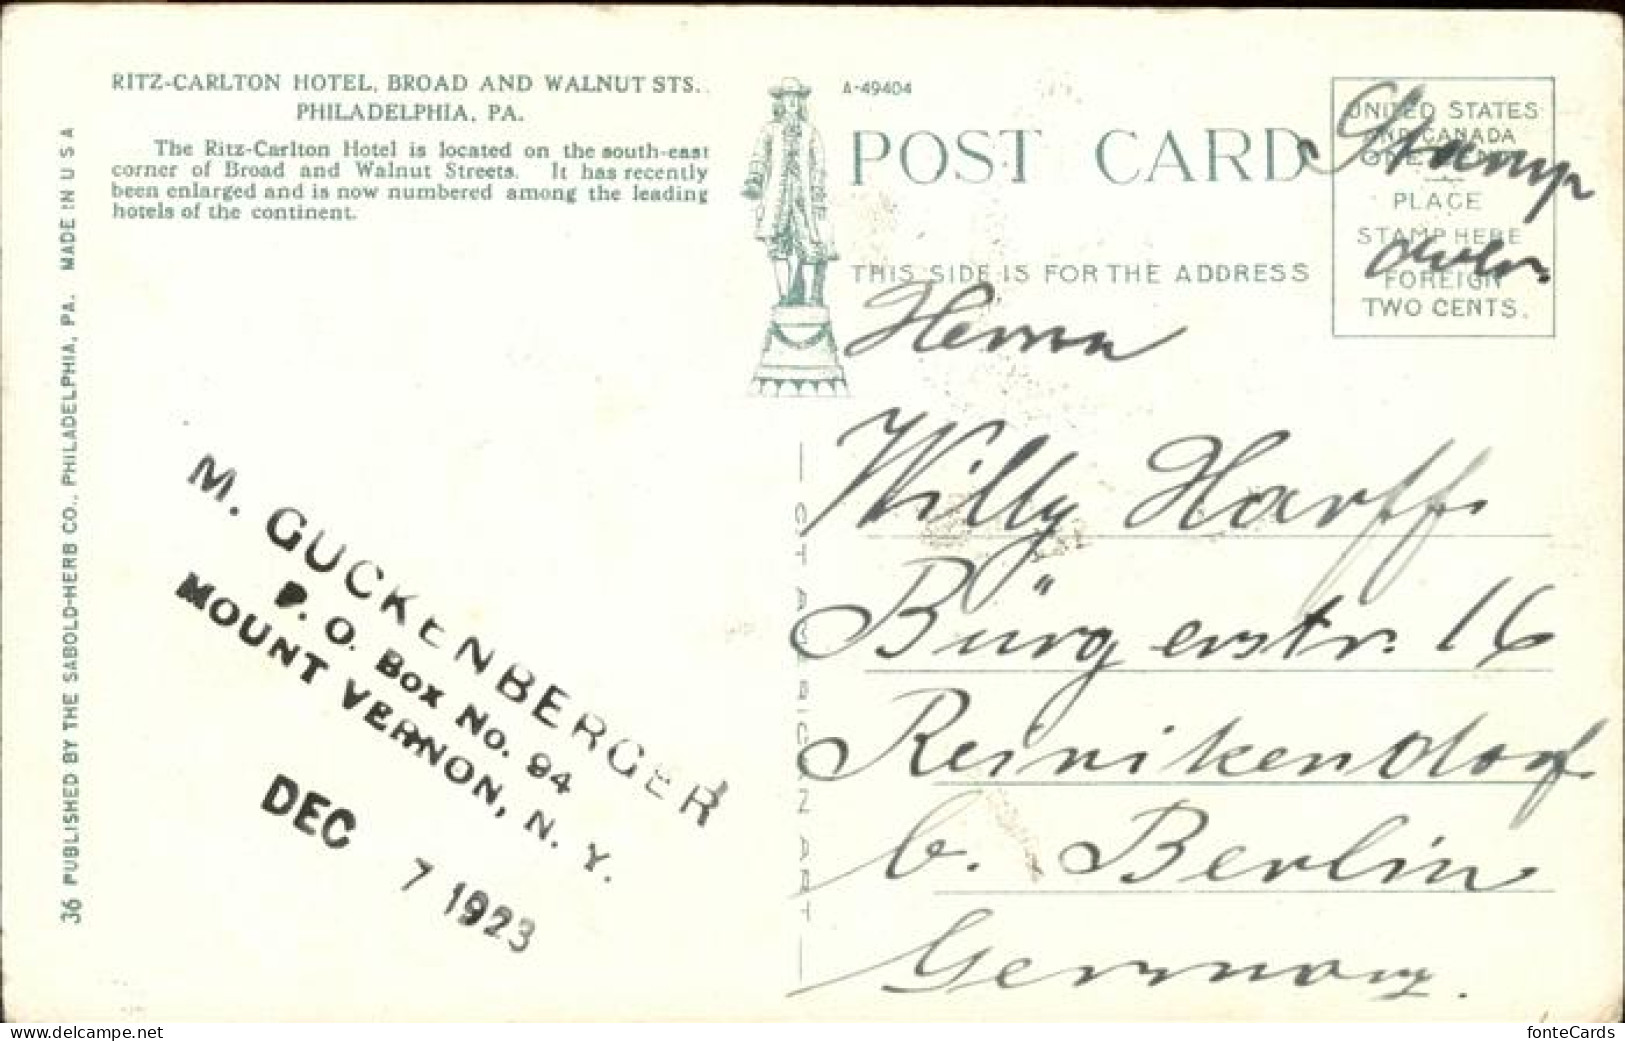 RITZ-CARLTON HOTEL, BROAD AND WALNUT STS.
PHILADELPHIA, PA.
The Ritz-Carlton Hotel is located on the south-east
corner of Broad and Walnut Streets. It has recently
been enlarged and is now numbered among the leading
hotels of the continent.
36 PUBLISHED BY THE SABOLD-HERB CO., PHILADELPHIA, PA. MADE IN U S A
A-49404
POST CARD
THIS SIDE IS FOR THE ADDRESS
UNITED STATES
AND CANADA
ONE
PLACE
STAMP HERE
FOREIGN
TWO CENTS.
Stamp
Herrn
Willy Harff
Bürgerstr. 16
Reinikendorf
b. Berlin
Germany.
M. GUCKENBERGER
P. O. Box No. 94
MOUNT VERNON, N. Y.
DEC 7 1923
C T AMERICAN ART
fonteCards
www.delcampe.net